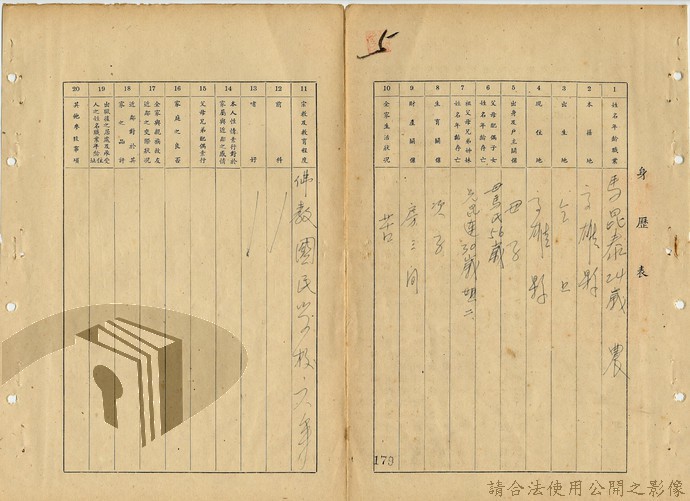 5
身歷表
1 姓名年齡職業 馬昆泰 24歲 農
2 本籍地 高雄縣
3 出生地 仝上
4 現住地 高雄縣
5 出身及戶主關係 母子
6 父母配偶子女姓名年齡存亡 母馬氏56歲
7 祖父母兄弟姊妹姓名年齡存亡 兄昆連30歲 姐二
8 生育關係 次子
9 財產關係 房三間
10 全家生活狀況 苦
179
11 宗教及教育程度 佛教 國民學校六年
12 前科
13 嗜好
14 本人性情素行對於家屬與近鄰之感情
15 父母兄弟配偶素行
16 家庭之良否
17 全家與親族故友近鄰之交際狀況
18 近鄰對於其家之品評
19 出獄後之居處及承受人之姓名職業年齡住址
20 其他參攷事項
請合法使用公開之影像